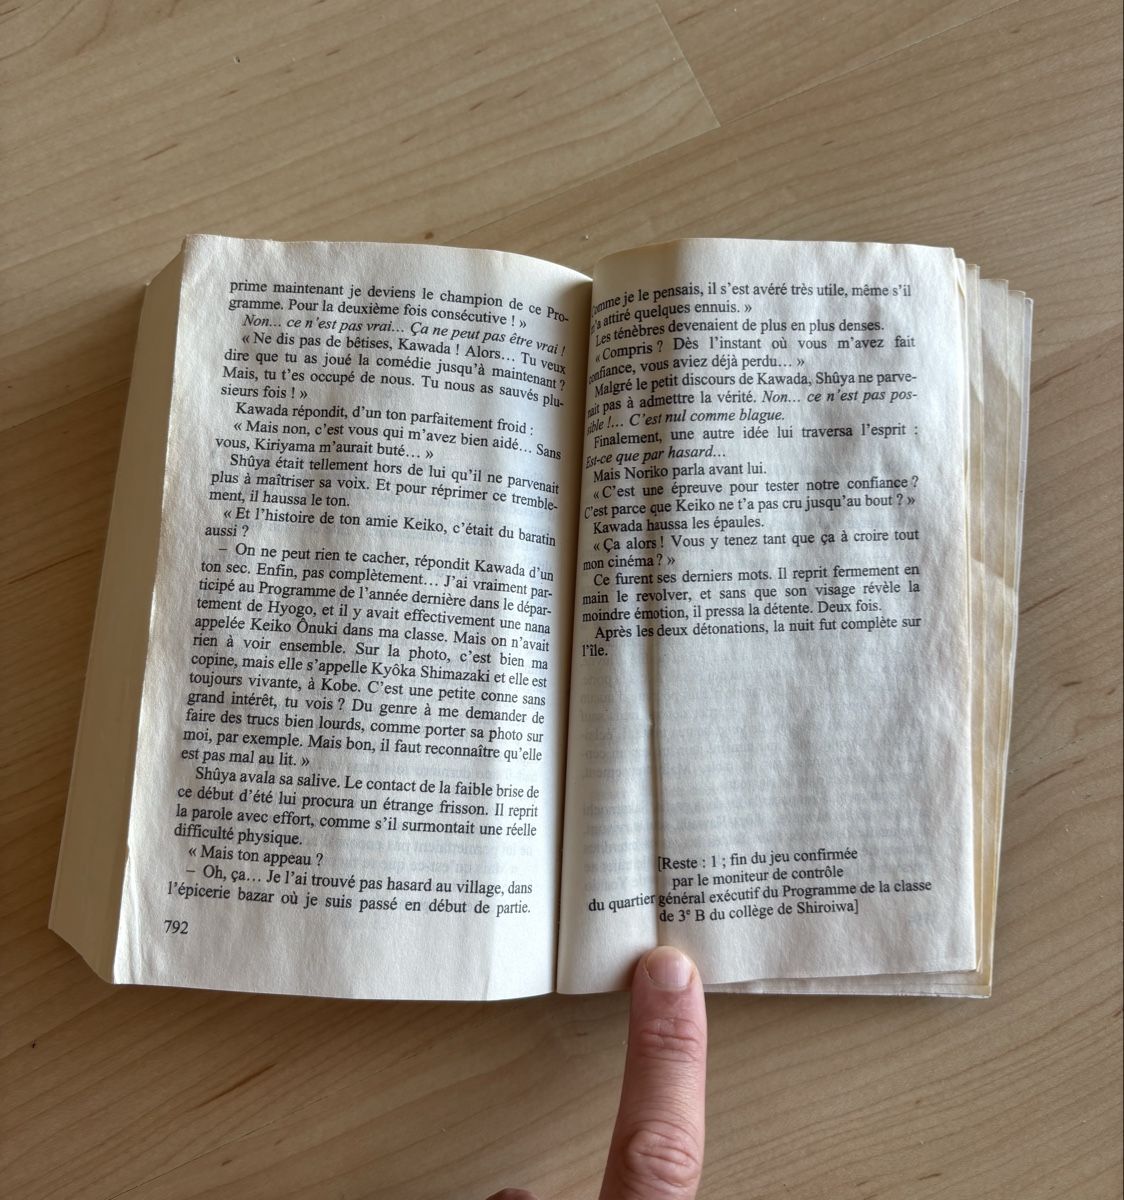 prime maintenant je deviens le champion de ce Pro-
gramme. Pour la deuxième fois consécutive ! »
Non... ce n'est pas vrai... Ça ne peut pas être vrai !
« Ne dis pas de bêtises, Kawada ! Alors... Tu veux
dire que tu as joué la comédie jusqu'à maintenant ?
Mais, tu t'es occupé de nous. Tu nous as sauvés plu-
sieurs fois ! »
Kawada répondit, d'un ton parfaitement froid :
« Mais non, c'est vous qui m'avez bien aidé... Sans
vous, Kiriyama m'aurait buté... »
Shûya était tellement hors de lui qu'il ne parvenait
plus à maîtriser sa voix. Et pour réprimer ce tremble-
ment, il haussa le ton.
« Et l'histoire de ton amie Keiko, c'était du baratin
aussi ?
– On ne peut rien te cacher, répondit Kawada d'un
ton sec. Enfin, pas complètement... J'ai vraiment par-
ticipé au Programme de l'année dernière dans le dépar-
tement de Hyogo, et il y avait effectivement une nana
appelée Keiko Ônuki dans ma classe. Mais on n'avait
rien à voir ensemble. Sur la photo, c'est bien ma
copine, mais elle s'appelle Kyôka Shimazaki et elle est
toujours vivante, à Kobe. C'est une petite conne sans
grand intérêt, tu vois ? Du genre à me demander de
faire des trucs bien lourds, comme porter sa photo sur
moi, par exemple. Mais bon, il faut reconnaître qu'elle
est pas mal au lit. »
Shûya avala sa salive. Le contact de la faible brise de
ce début d'été lui procura un étrange frisson. Il reprit
la parole avec effort, comme s'il surmontait une réelle
difficulté physique.
« Mais ton appeau ?
– Oh, ça... Je l'ai trouvé pas hasard au village, dans
l'épicerie bazar où je suis passé en début de partie.
792
Comme je le pensais, il s'est avéré très utile, même s'il
m'a attiré quelques ennuis. »
Les ténèbres devenaient de plus en plus denses.
« Compris ? Dès l'instant où vous m'avez fait
confiance, vous aviez déjà perdu... »
Malgré le petit discours de Kawada, Shûya ne parve-
nait pas à admettre la vérité. Non... ce n'est pas pos-
sible !... C'est nul comme blague.
Finalement, une autre idée lui traversa l'esprit :
Est-ce que par hasard...
Mais Noriko parla avant lui.
« C'est une épreuve pour tester notre confiance ?
C'est parce que Keiko ne t'a pas cru jusqu'au bout ? »
Kawada haussa les épaules.
« Ça alors ! Vous y tenez tant que ça à croire tout
mon cinéma ? »
Ce furent ses derniers mots. Il reprit fermement en
main le revolver, et sans que son visage révèle la
moindre émotion, il pressa la détente. Deux fois.
Après les deux détonations, la nuit fut complète sur
l'île.
[Reste : 1 ; fin du jeu confirmée
par le moniteur de contrôle
du quartier général exécutif du Programme de la classe
de 3e B du collège de Shiroiwa]